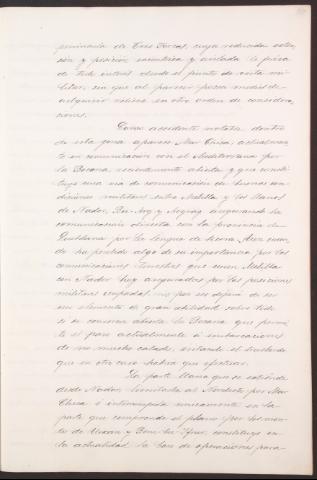 península de Tres Forcas, cuya reducida exten-
sión y posición excéntrica y aislada le priva
de todo interés desde el punto de vista mi-
litar, sin que al parecer posea medios de
adquirir relieve en otro orden de considera-
ciones.
Como accidente notable dentro
de esta zona aparece Mar Chica, actualmen-
te en comunicación con el Mediterráneo por
la Bocana recientemente abierta y que consti-
tuye una vía de comunicación de buenas con-
diciones militares entre Melilla y los llanos
de Nador, Bu-Arg y asegurando la
comunicación directa con la provincia de
Quebdana por la lengua de tierra. Aun cuan-
do ha perdido algo de su importancia por las
comunicaciones terrestres que unen Melilla
con Nador hoy aseguradas por las posiciones
militares ocupadas, no por eso dejará de ser
un elemento de gran utilidad sobre todo
si se conserva abierta la Bocana que permi-
te el paso actualmente á embarcaciones
de no mucho calado, evitando el trasbordo
que en otro caso habría que efectuar.
La parte llana que se extiende
desde Nador, limitada al Nordeste por Mar
Chica é interrumpida únicamente en la
parte que comprende el plano por los mon-
tes de Uixan y Beni-bu-Ifrur, constituye en
la actualidad la base de operaciones para